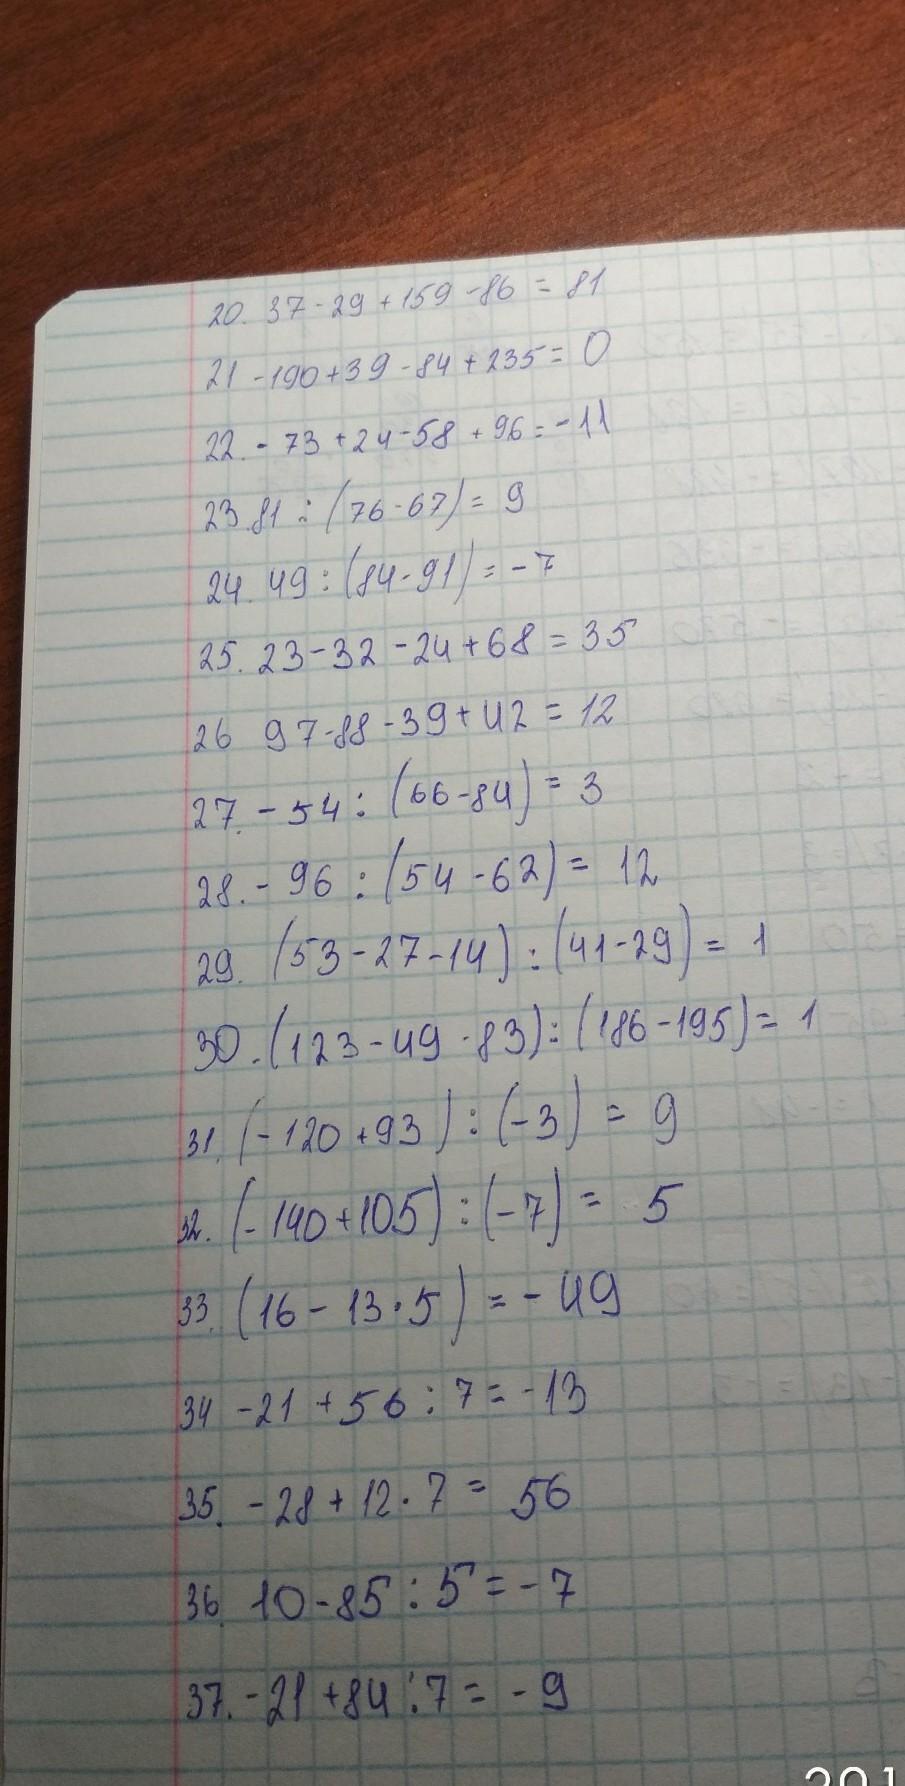 20. 37-29+159-86 = 81
21 -190+39-84+235 = 0
22. -73+24-58+96 = -11
23. 81 : (76-67) = 9
24. 49 : (84-91) = -7
25. 23-32-24+68 = 35
26 97-88-39+42 = 12
27. -54 : (66-84) = 3
28. -96 : (54-62) = 12
29. (53-27-14) : (41-29) = 1
30. (123-49-83) : (186-195) = 1
31. (-120+93) : (-3) = 9
32. (-140+105) : (-7) = 5
33. (16-13·5) = -49
34 -21+56 : 7 = -13
35. -28+12·7 = 56
36. 10-85 : 5 = -7
37. -21+84 : 7 = -9